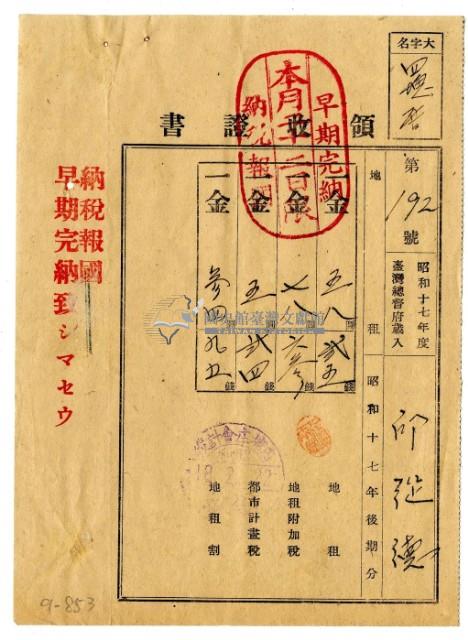 大字名
領收證書
本月廿二日限
早期完納
納稅報國
第192號
昭和十七年度
臺灣總督府歲入
地租
昭和十七年後期分
邱
德
一金
五八
圓
錢
地租
一金
七八
圓
錢
地租附加稅
一金
五
圓
貳四
錢
都市計畫稅
一金
圓
九五
錢
地租割
國史館臺灣文獻館
納稅報國
早期完納致シマセウ
9-853